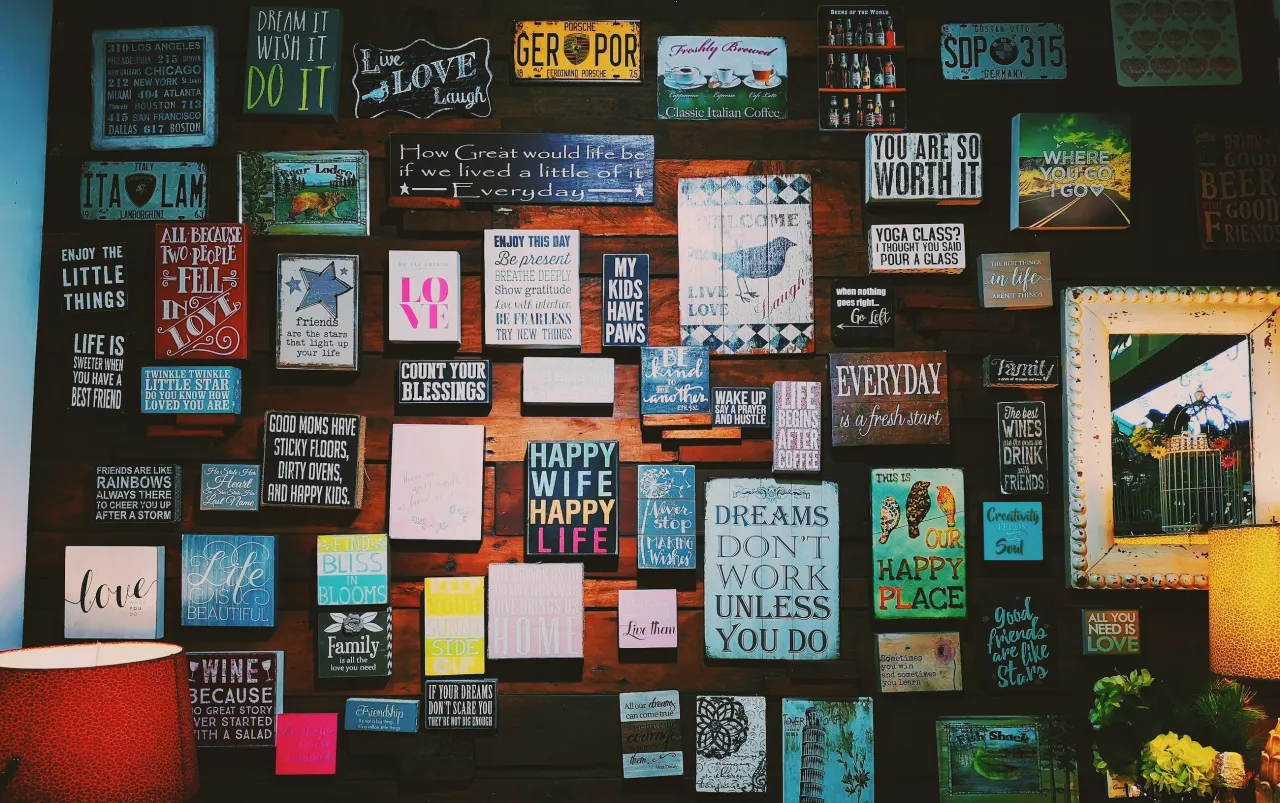 310 LOS ANGELES
PHILADELPHIA 215 DENVER
NEW ORLEANS CHICAGO
212 NEW YORK St Louis
MIAMI 404 ATLANTA
HOUSTON 713
415 SAN FRANCISCO
DALLAS 617 BOSTON
DREAM IT
WISH IT
DO IT
Live
LOVE
Laugh
PORSCHE
GER POR
FERDINAND PORSCHE
Freshly Brewed
Classic Italian Coffee
BEERS OF THE WORLD
SDP 315
GERMANY
ITALY
ITA LAM
LAMBORGHINI 63
How Great would life be
if we lived a little of it
Everyday
WELCOME
LIVE
LOVE
Laugh
YOU ARE SO
WORTH IT
WHERE
YOU GO
I GO
BEER
GOOD
FRIENDS
ENJOY THE
LITTLE
THINGS
ALL BECAUSE
TWO PEOPLE
FELL
IN
LOVE
friends
are the stars
that light up
your life
LO
VE
ENJOY THIS DAY
Be present
BREATHE DEEPLY
Show gratitude
Live with intention
BE FEARLESS
TRY NEW THINGS
MY
KIDS
HAVE
PAWS
YOGA CLASS?
I THOUGHT YOU SAID
POUR A CLASS
when nothing
goes right...
Go Left
THE BEST THINGS
in life
AREN'T THINGS
LIFE IS
SWEETER WHEN
YOU HAVE A
BEST FRIEND
TWINKLE TWINKLE
LITTLE STAR
DO YOU KNOW HOW
LOVED YOU ARE
COUNT YOUR
BLESSINGS
BE
kind
to
one
another
WAKE UP
SAY A PRAYER
AND HUSTLE
LIFE
BEGINS
AFTER
COFFEE
EVERYDAY
is a fresh start
Family
GOOD MOMS HAVE
STICKY FLOORS,
DIRTY OVENS,
AND HAPPY KIDS.
The best
WINES
are the ones we
DRINK
with
FRIENDS
FRIENDS ARE LIKE
RAINBOWS
ALWAYS THERE
TO CHEER YOU UP
AFTER A STORM
He Stole Her
Heart
So She Stole His
Last Name
HAPPY
WIFE
HAPPY
LIFE
Never
stop
MAKING
Wishes
DREAMS
DON'T
WORK
UNLESS
YOU DO
THIS IS
OUR
HAPPY
PLACE
Creativity
Soul
love
Life
IS
BEAUTIFUL
FIND
BLISS
IN
BLOOMS
Family
is all the
love you need
YOUR
SUNNY
SIDE
UP
HOME
Live them
Sometimes
you win
and sometimes
you learn
Good
friends
are like
Stars
ALL YOU
NEED IS
LOVE
WINE
BECAUSE
NO GREAT STORY
EVER STARTED
WITH A SALAD
Friendship
IF YOUR DREAMS
DON'T SCARE YOU
THEY'RE NOT BIG ENOUGH
All our dreams
can come true
Fish Shack